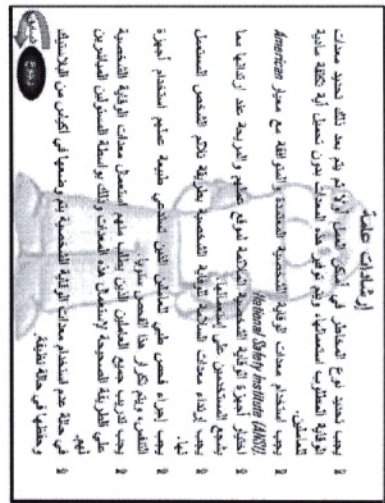 إرشادات عامة
يجب تحديد نوع المخاطر في أماكن العمل أولا ثم يتم بعد ذلك تحديد معدات
الوقاية المطلوب استعمالها، ويتم توفير هذه المعدات بدون تحميل أية تكلفة مادية
للعاملين.
يجب استخدام معدات الوقاية الشخصية المعتمدة والمتوافقة مع معيار American
National Safety Institute (ANSI).
اختيار أجهزة الوقاية الشخصية الملائمة لموقع عملهم والمريحة عند ارتدائها مما
يشجع المستخدمين على إستعمالها.
يجب ارتداء معدات السلامة الوقاية الشخصية بطريقة تلائم الشخص المستعمل
لها.
يجب إجراء فحص طبي للعاملين الذين تقتضي طبيعة عملهم استخدام أجهزة
التنفس، ويتم تكرار هذا الفحص سنويا.
يجب تدريب جميع العاملين الذين يطلب منهم استعمال معدات الوقاية الشخصية
على الطريقة الصحيحة لإستعمال هذه المعدات وذلك بواسطة المسئولين المباشرين
لهم.
في حالة عدم استخدام معدات الوقاية الشخصية يتم وضعها في أكياس من البلاستيك
وحفظها في حالة نظيفة.
رجوع